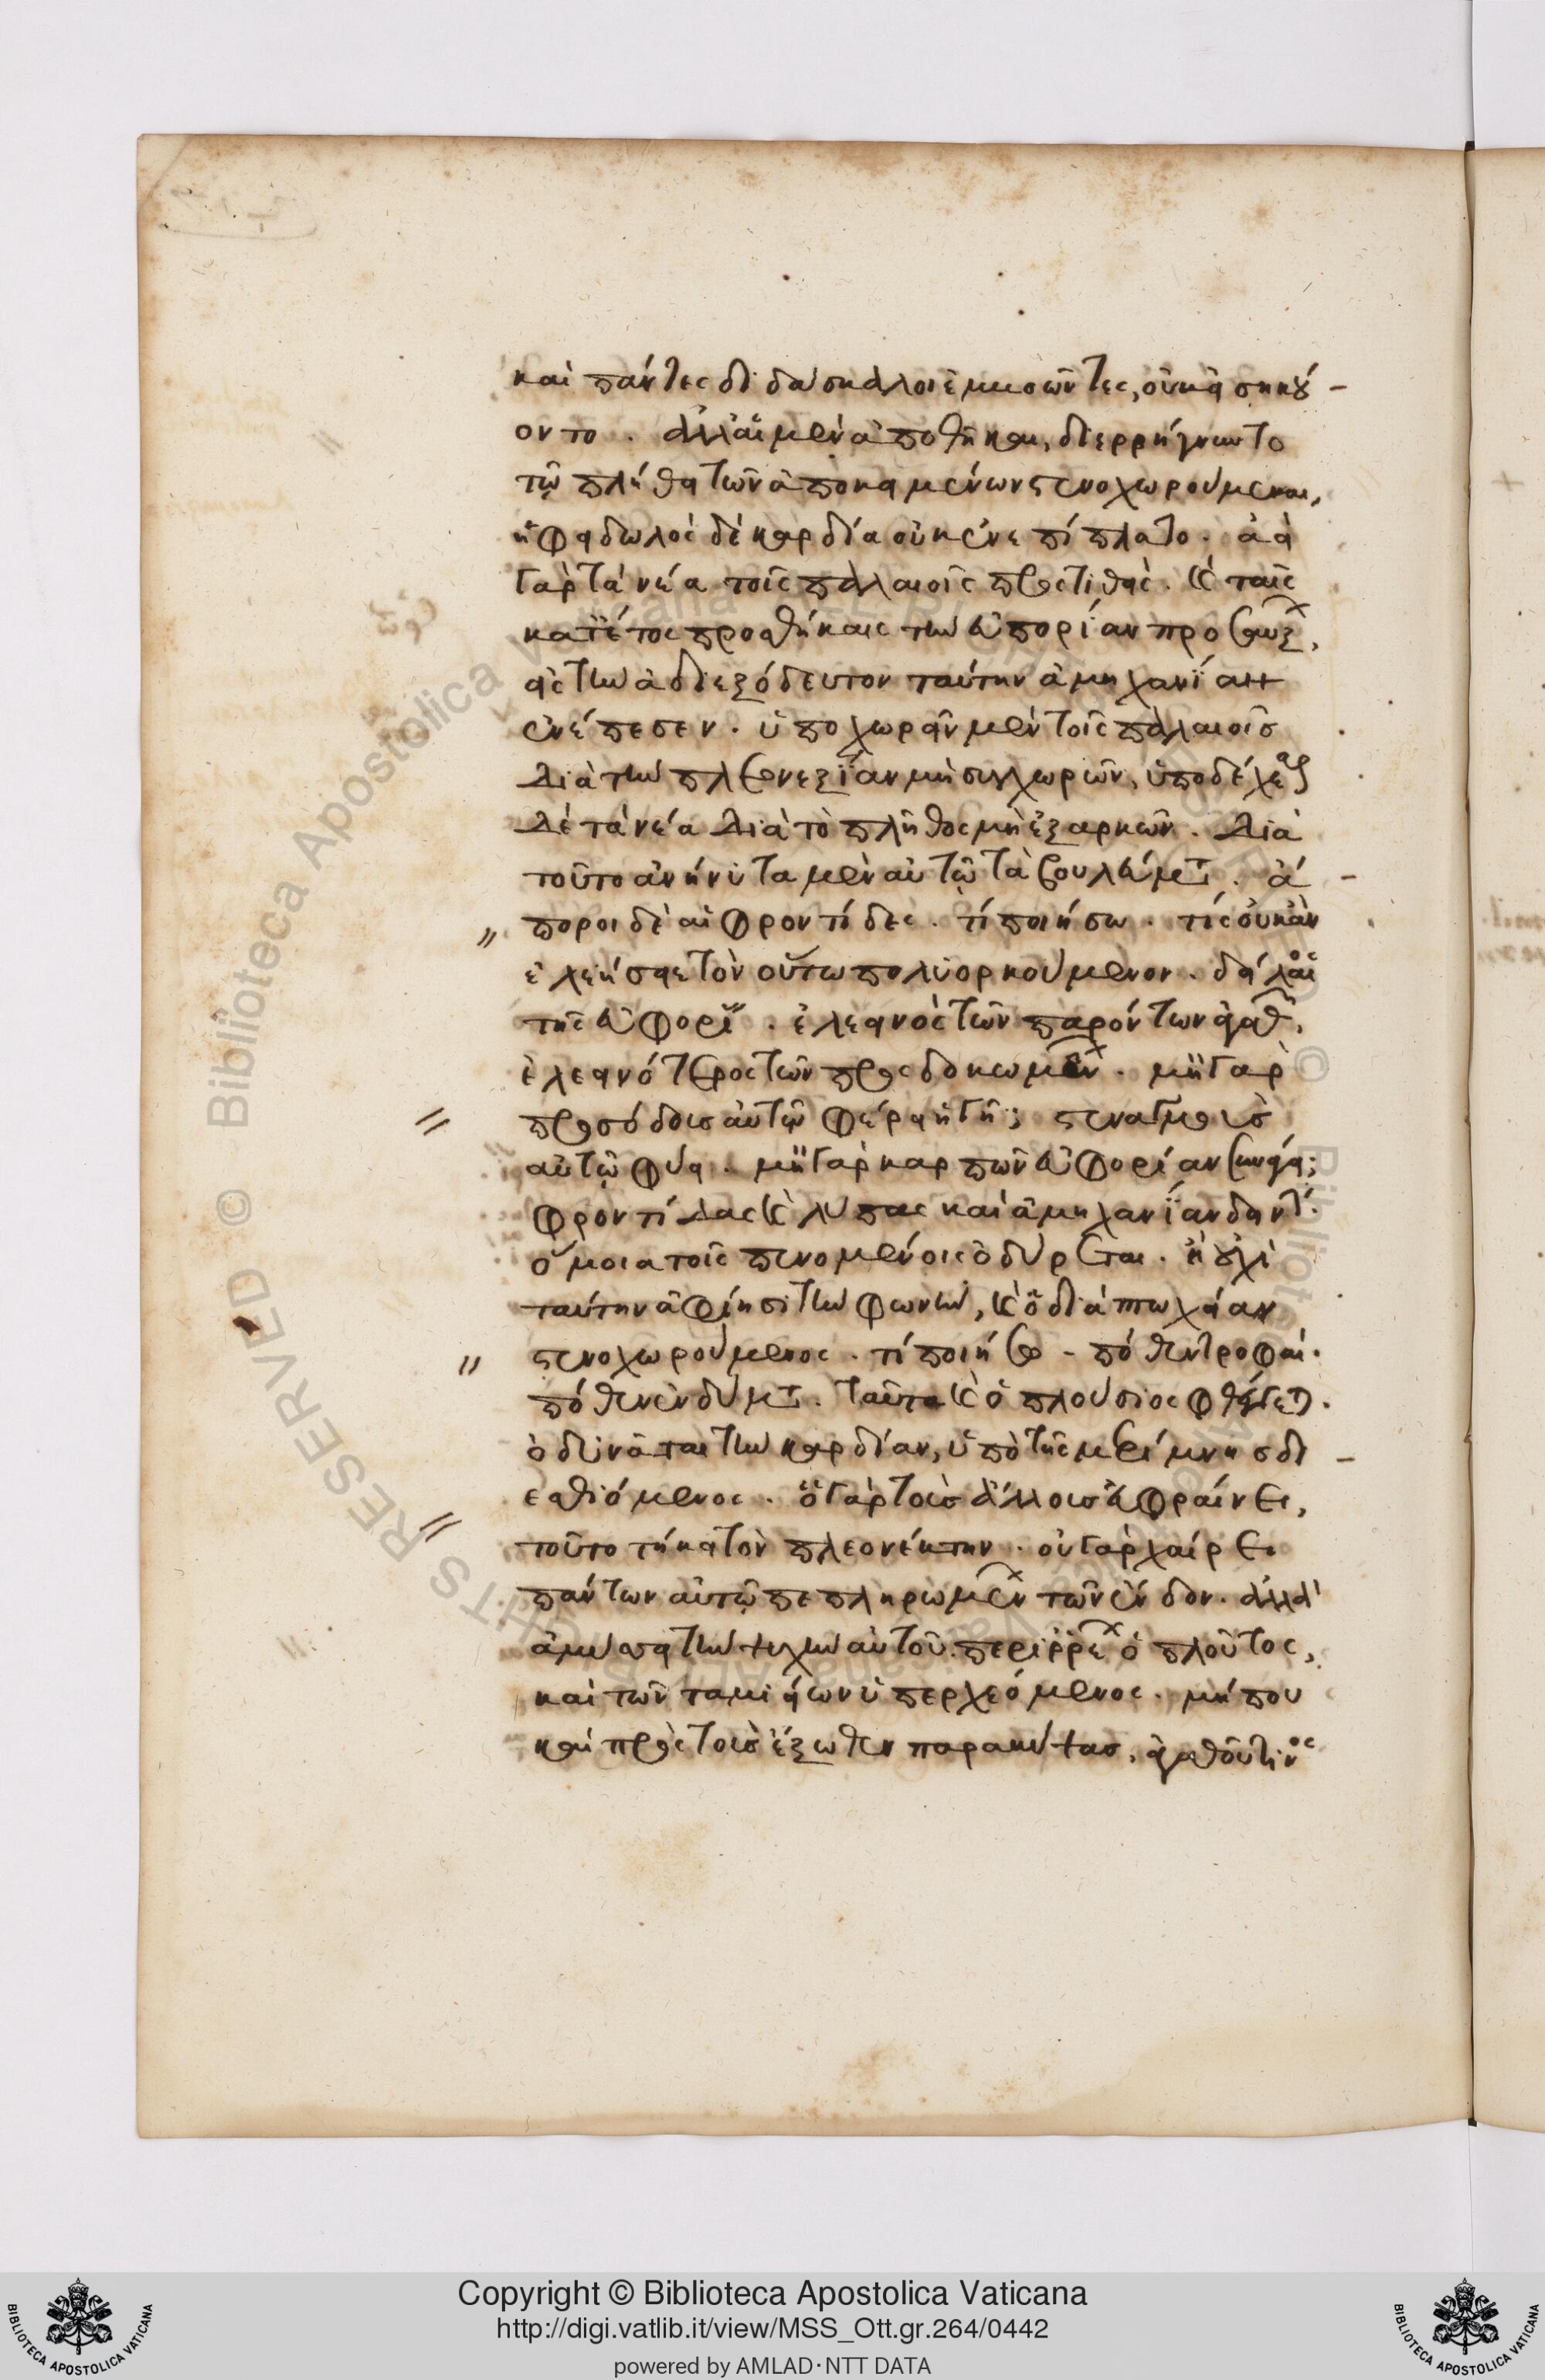 καὶ πάντες διδάσκαλοι ἐμβοῶντες, οὐκ εἰσηκού-
οντο. ἀλλ' αἱ μὲν ἀποθῆκαι, διερρήγνυντο
τῷ πλήθει τῶν ἀποκειμένων στενοχωρούμεναι,
ἡ φειδωλὸς δὲ καρδία οὐκ ἐνεπίπλατο. ἀεὶ
γὰρ τὰ νέα τοῖς παλαιοῖς προστιθεὶς. καὶ ταῖς
κατ' ἔτος προσθήκαις τὴν εὐπορίαν προσαύξων,
εἰς τὴν ἀδιεξόδευτον ταύτην ἀμηχανίαν
ἐνέπεσεν. ὑποχωρεῖν μὲν τοῖς παλαιοῖς
διὰ τὴν πλεονεξίαν μὴ συγχωρῶν, ὑποδέχεσθαι
δὲ τὰ νέα διὰ τὸ πλῆθος μὴ ἐξαρκῶν. διὰ
τοῦτο ἀνήνυτα μὲν αὐτῷ τὰ βουλεύματα. ἄ-
ποροι δὲ αἱ φροντίδες. τί ποιήσω. τίς οὐκ ἂν
ἐλεήσειε τὸν οὕτω πολυορκούμενον. δείλαιος
τῆς εὐφορίας. ἐλεεινὸς τῶν παρόντων ἀγαθῶν,
ἐλεεινότερος τῶν προσδοκωμένων. μὴ γὰρ
προσόδοις αὐτῷ φέρει ἡ γῆ; στεναγμοὺς
αὐτῷ φύει. μὴ γὰρ καρπῶν εὐφορίαν συνάγει;
φροντίδας καὶ λύπας καὶ ἀμηχανίαν δεινήν.
ὅμοια τοῖς πενομένοις ὀδύρεται. ἢ οὐχὶ
ταύτην ἀφίησι τὴν φωνήν, καὶ ὁ διὰ πτωχείαν
στενοχωρούμενος. τί ποιήσω. πόθεν τροφαί.
πόθεν ἐνδύματα. ταῦτα καὶ ὁ πλούσιος φθέγγεται.
ὀδυνᾶται τὴν καρδίαν, ὑπὸ τῆς μερίμνης δι-
εσθιόμενος. ὃ γὰρ τοὺς ἄλλους εὐφραίνει,
τοῦτο τήκει τὸν πλεονέκτην. οὐ γὰρ χαίρει
πάντων αὐτῷ πεπληρωμένων τῶν ἔνδον. ἀλλὰ
ἀμύσσει τὴν ψυχὴν αὐτοῦ περιρρέων ὁ πλοῦτος,
καὶ τῶν ταμιείων ὑπερχεόμενος. μή που
καὶ πρὸς τοὺς ἔξωθεν παρακύψας, ἀγαθοῦ τινος
Copyright © Biblioteca Apostolica Vaticana
http://digi.vatlib.it/view/MSS_Ott.gr.264/0442
powered by AMLAD·NTT DATA